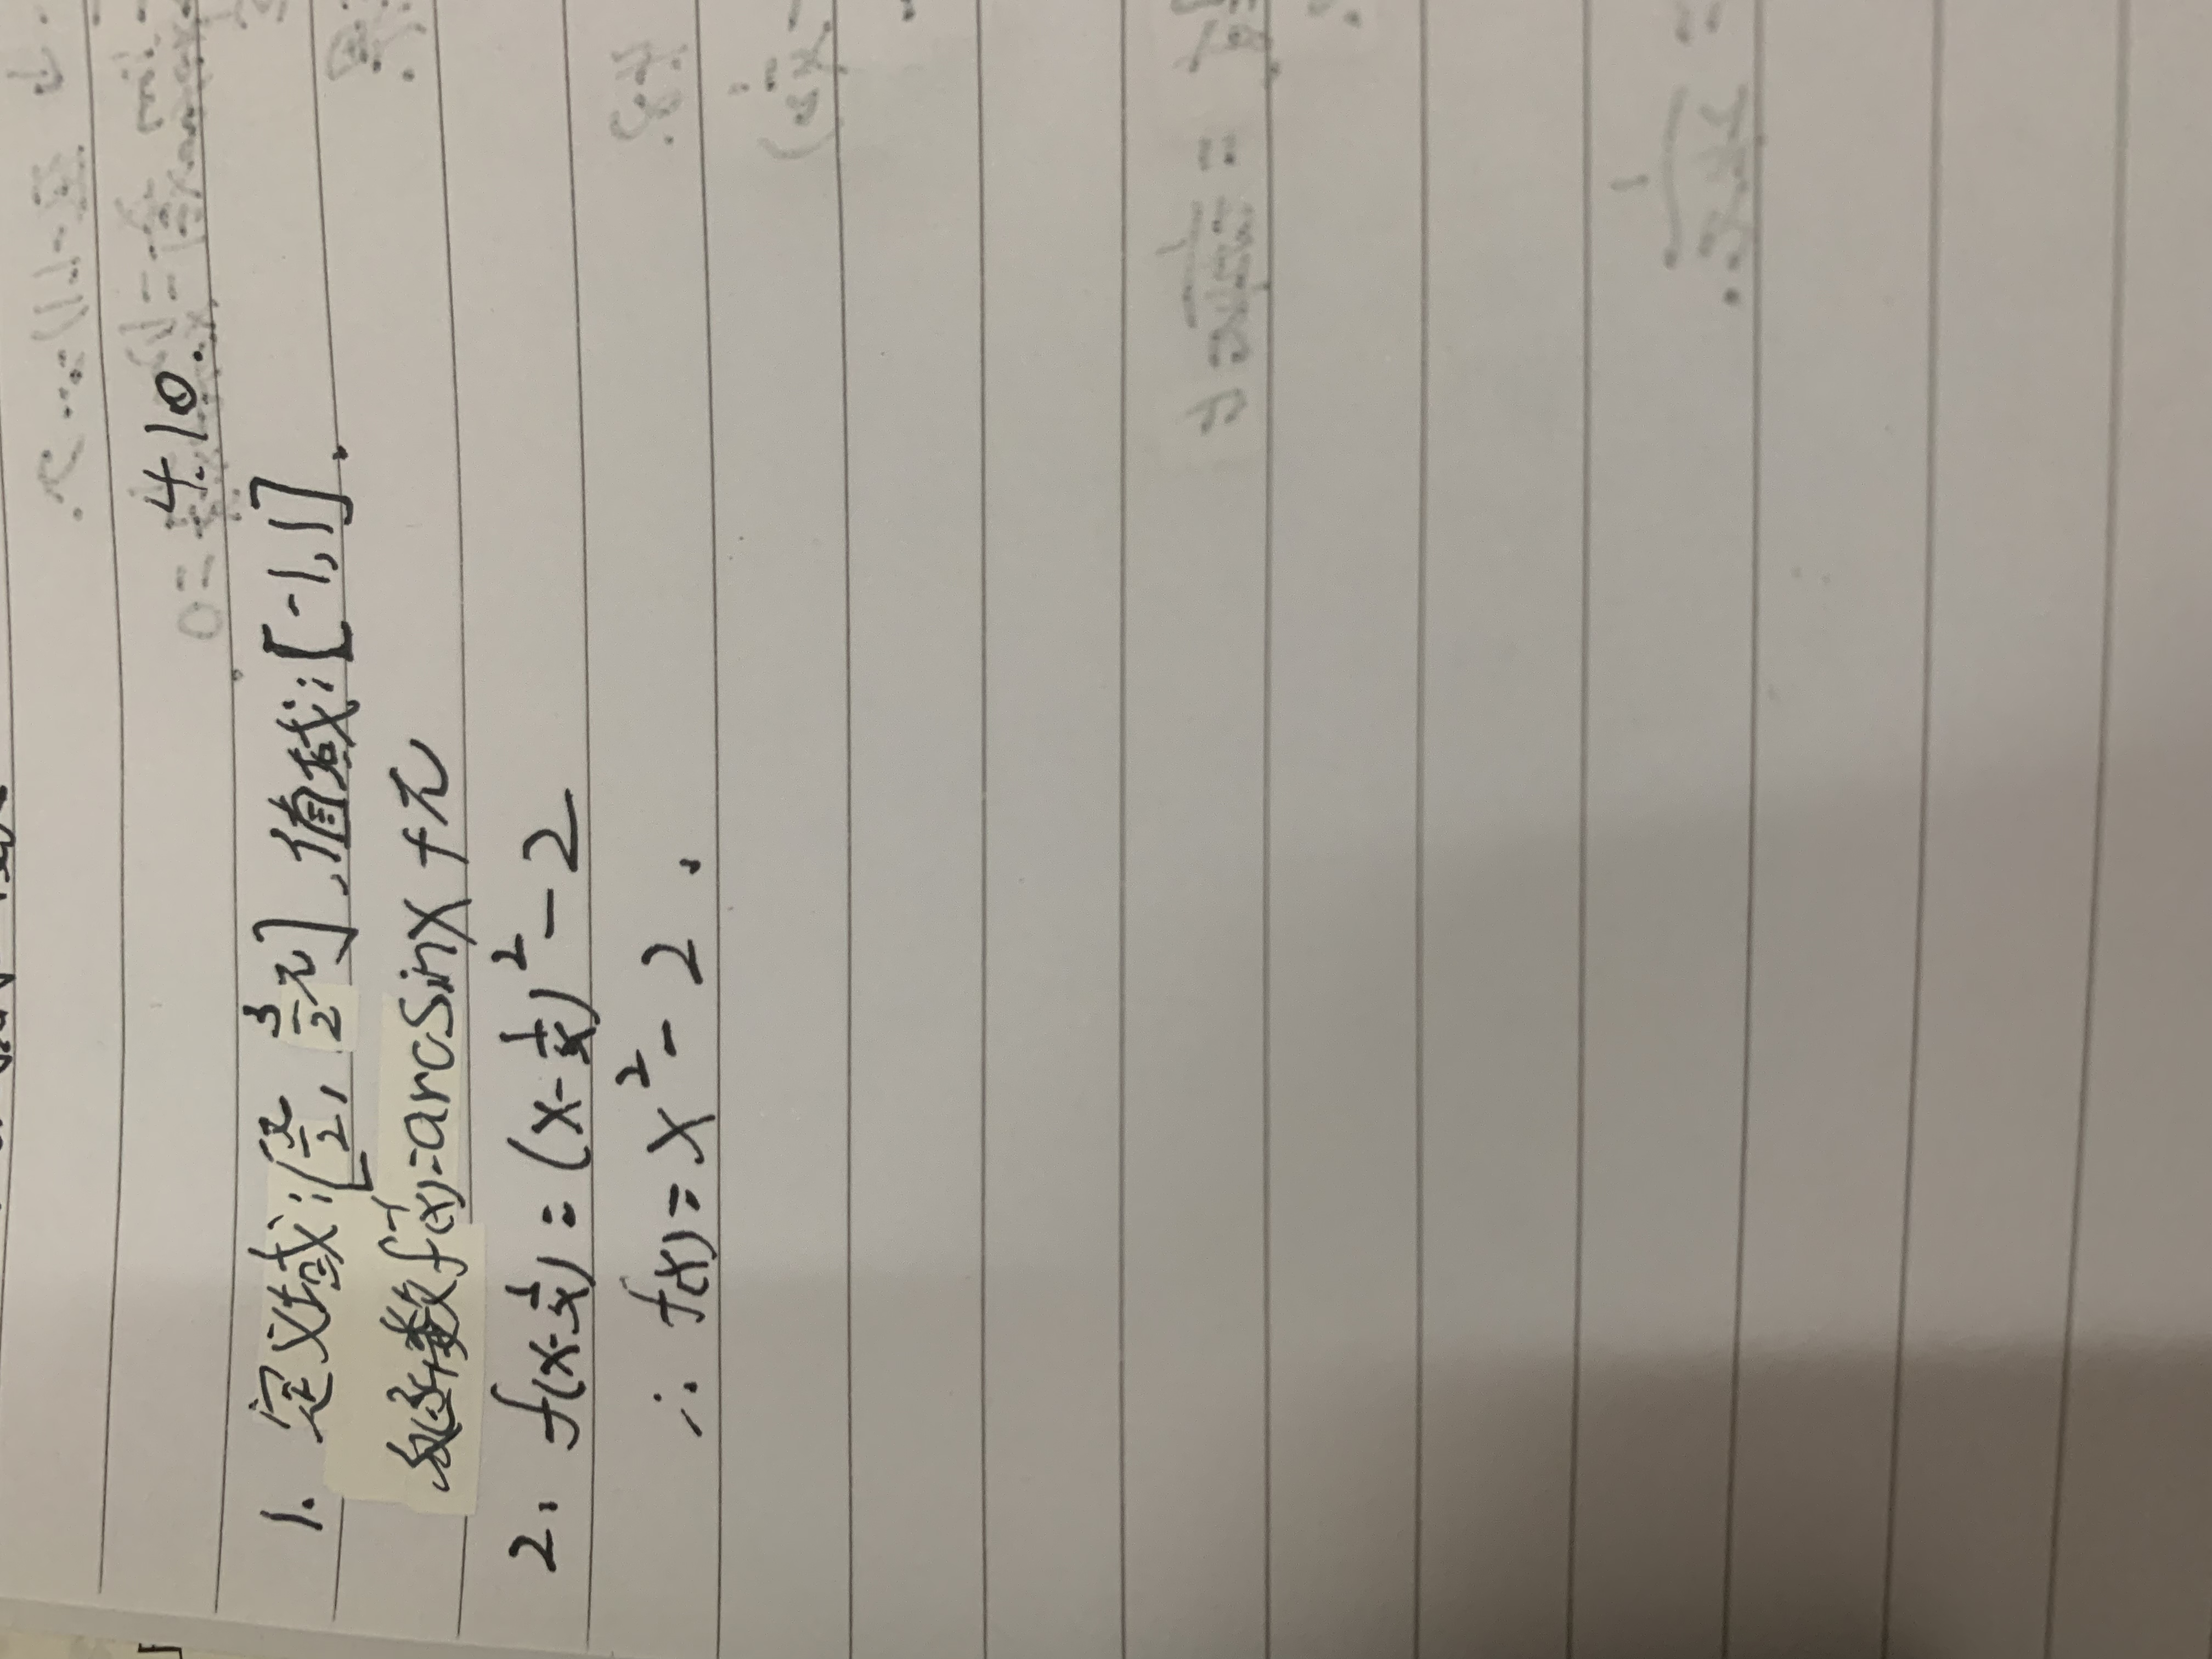 4.10.
1. 定义域:[π/2, 3/2 π],值域:[-1,1].
反函数f⁻¹(x)=arcsinx+π
2. f(x-1/x)=(x-1/x)²-2
∴ f(x)=x²-2.